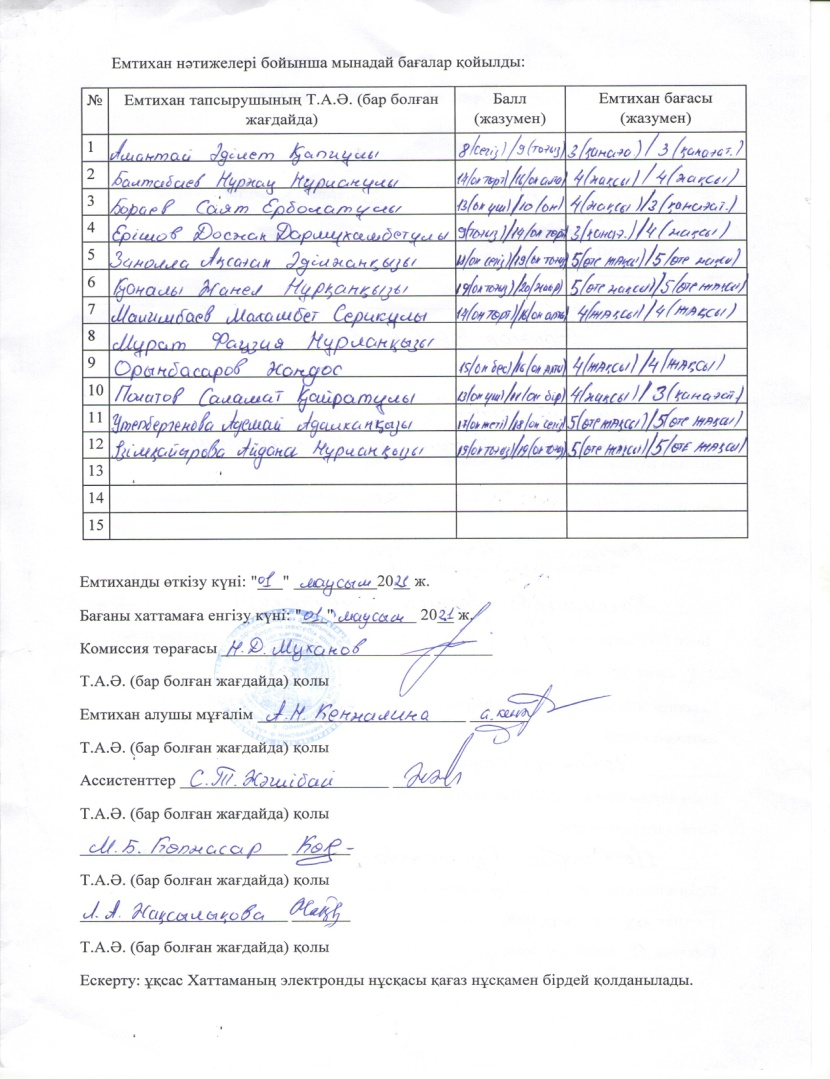 Емтихан нәтижелері бойынша мынадай бағалар қойылды:
№ Емтихан тапсырушының Т.А.Ә. (бар болған жағдайда) Балл (жазумен) Емтихан бағасы (жазумен)
1 Амантай Әділет Қапиұлы 8(сегіз)/9(тоғыз) 3(қанаға)/3(қанағат.)
2 Балтабаев Нұржау Нұрланұлы 14(он төрт)/16(он алты) 4(жақсы)/4(жақсы)
3 Бораев Саят Ерболатұлы 13(он үш)/10(он) 4(жақсы)/3(қанағат.)
4 Ерішов Досжан Дармухамбетұлы 9(тоғыз)/14(он төрт) 3(қанағ.)/4(жақсы)
5 Занолла Ақсағап Әділжанқызы 18(он сегіз)/19(он тоғыз) 5(өте жақсы)/5(өте жақсы)
6 Қоналы Жанел Нұрқанқызы 19(он тоғыз)/20(жиыр) 5(өте жақсы)/5(өте жақсы)
7 Малимбаев Махамбет Серикұлы 14(он төрт)/16(он алты) 4(жақсы)/4(жақсы)
8 Мұрат Фаузия Нұрланқызы
9 Орынбасаров Жандос 15(он бес)/16(он алты) 4(жақсы)/4(жақсы)
10 Полатов Саламат Қайратұлы 13(он үш)/11(он бір) 4(жақсы)/3(қанағат.)
11 Утепбергенова Адемай Адалханқызы 17(он жеті)/18(он сегіз) 5(өте жақсы)/5(өте жақсы)
12 Әзімқайырова Айдана Нұрланқызы 19(он тоғыз)/19(он тоғыз) 5(өте жақсы)/5(өте жақсы)
13
14
15
Емтиханды өткізу күні: "01" маусым 2021 ж.
Бағаны хаттамаға енгізу күні: "01" маусым 2021 ж.
Комиссия төрағасы Н.Д. Муханов
Т.А.Ә. (бар болған жағдайда) қолы
Емтихан алушы мұғалім А.Н. Кенжалина
Т.А.Ә. (бар болған жағдайда) қолы
Ассистенттер С.Т. Жәшібай
Т.А.Ә. (бар болған жағдайда) қолы
М.Б. Көпжасар
Т.А.Ә. (бар болған жағдайда) қолы
Л.А. Жақсылықова
Т.А.Ә. (бар болған жағдайда) қолы
Ескерту: ұқсас Хаттаманың электронды нұсқасы қағаз нұсқамен бірдей қолданылады.